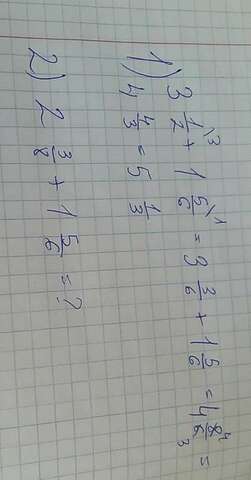 1) 3 1/2\3 + 1 5/6\1 = 3 3/6 + 1 5/6 = 4 8/6 4/3 =
4 4/3 = 5 1/3
2) 2 3/8 + 1 5/6 = ?